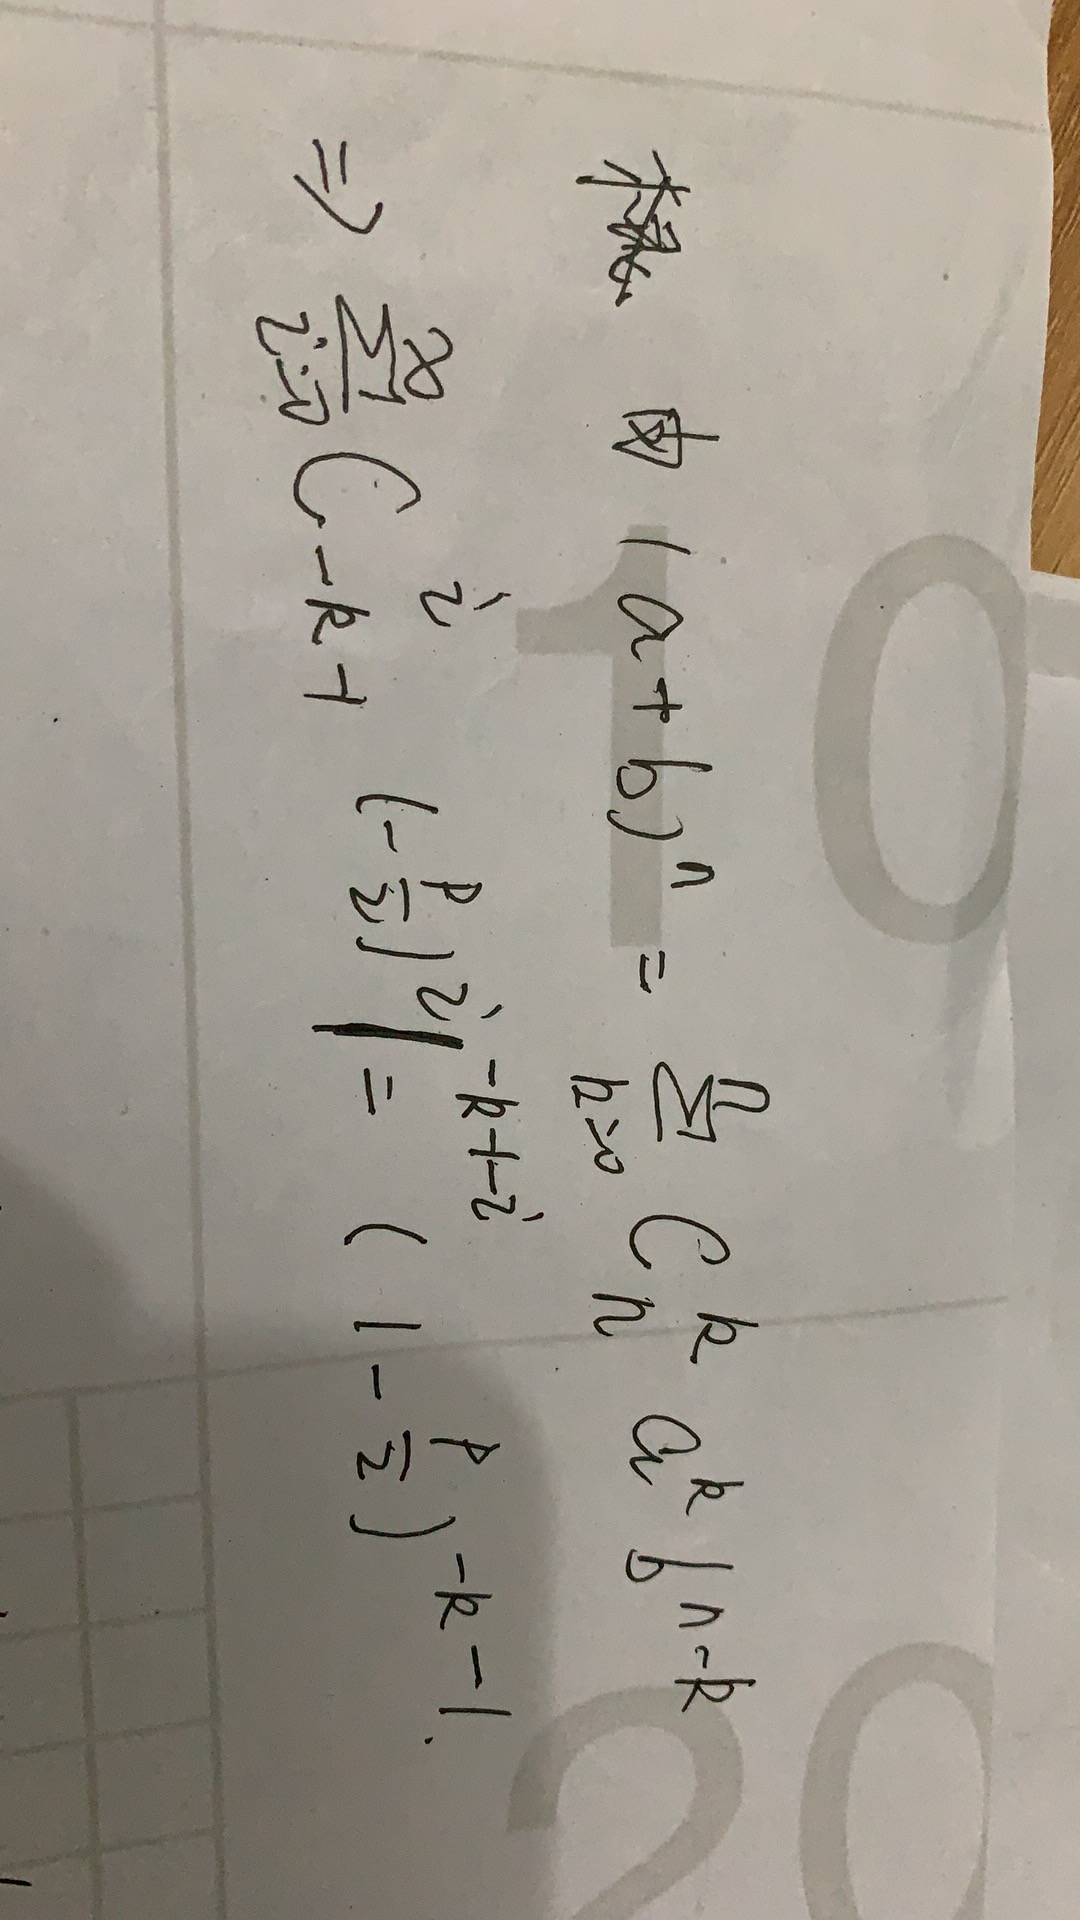 由 (a+b)ⁿ = ∑_{k=0}^{n} C_n^k a^k b^{n-k}
⇒ ∑_{i=0}^{∞} C_{-k-1}^{i} (-p/2)^i 1^{-k-1-i} = (1-p/2)^{-k-1}.
10
20